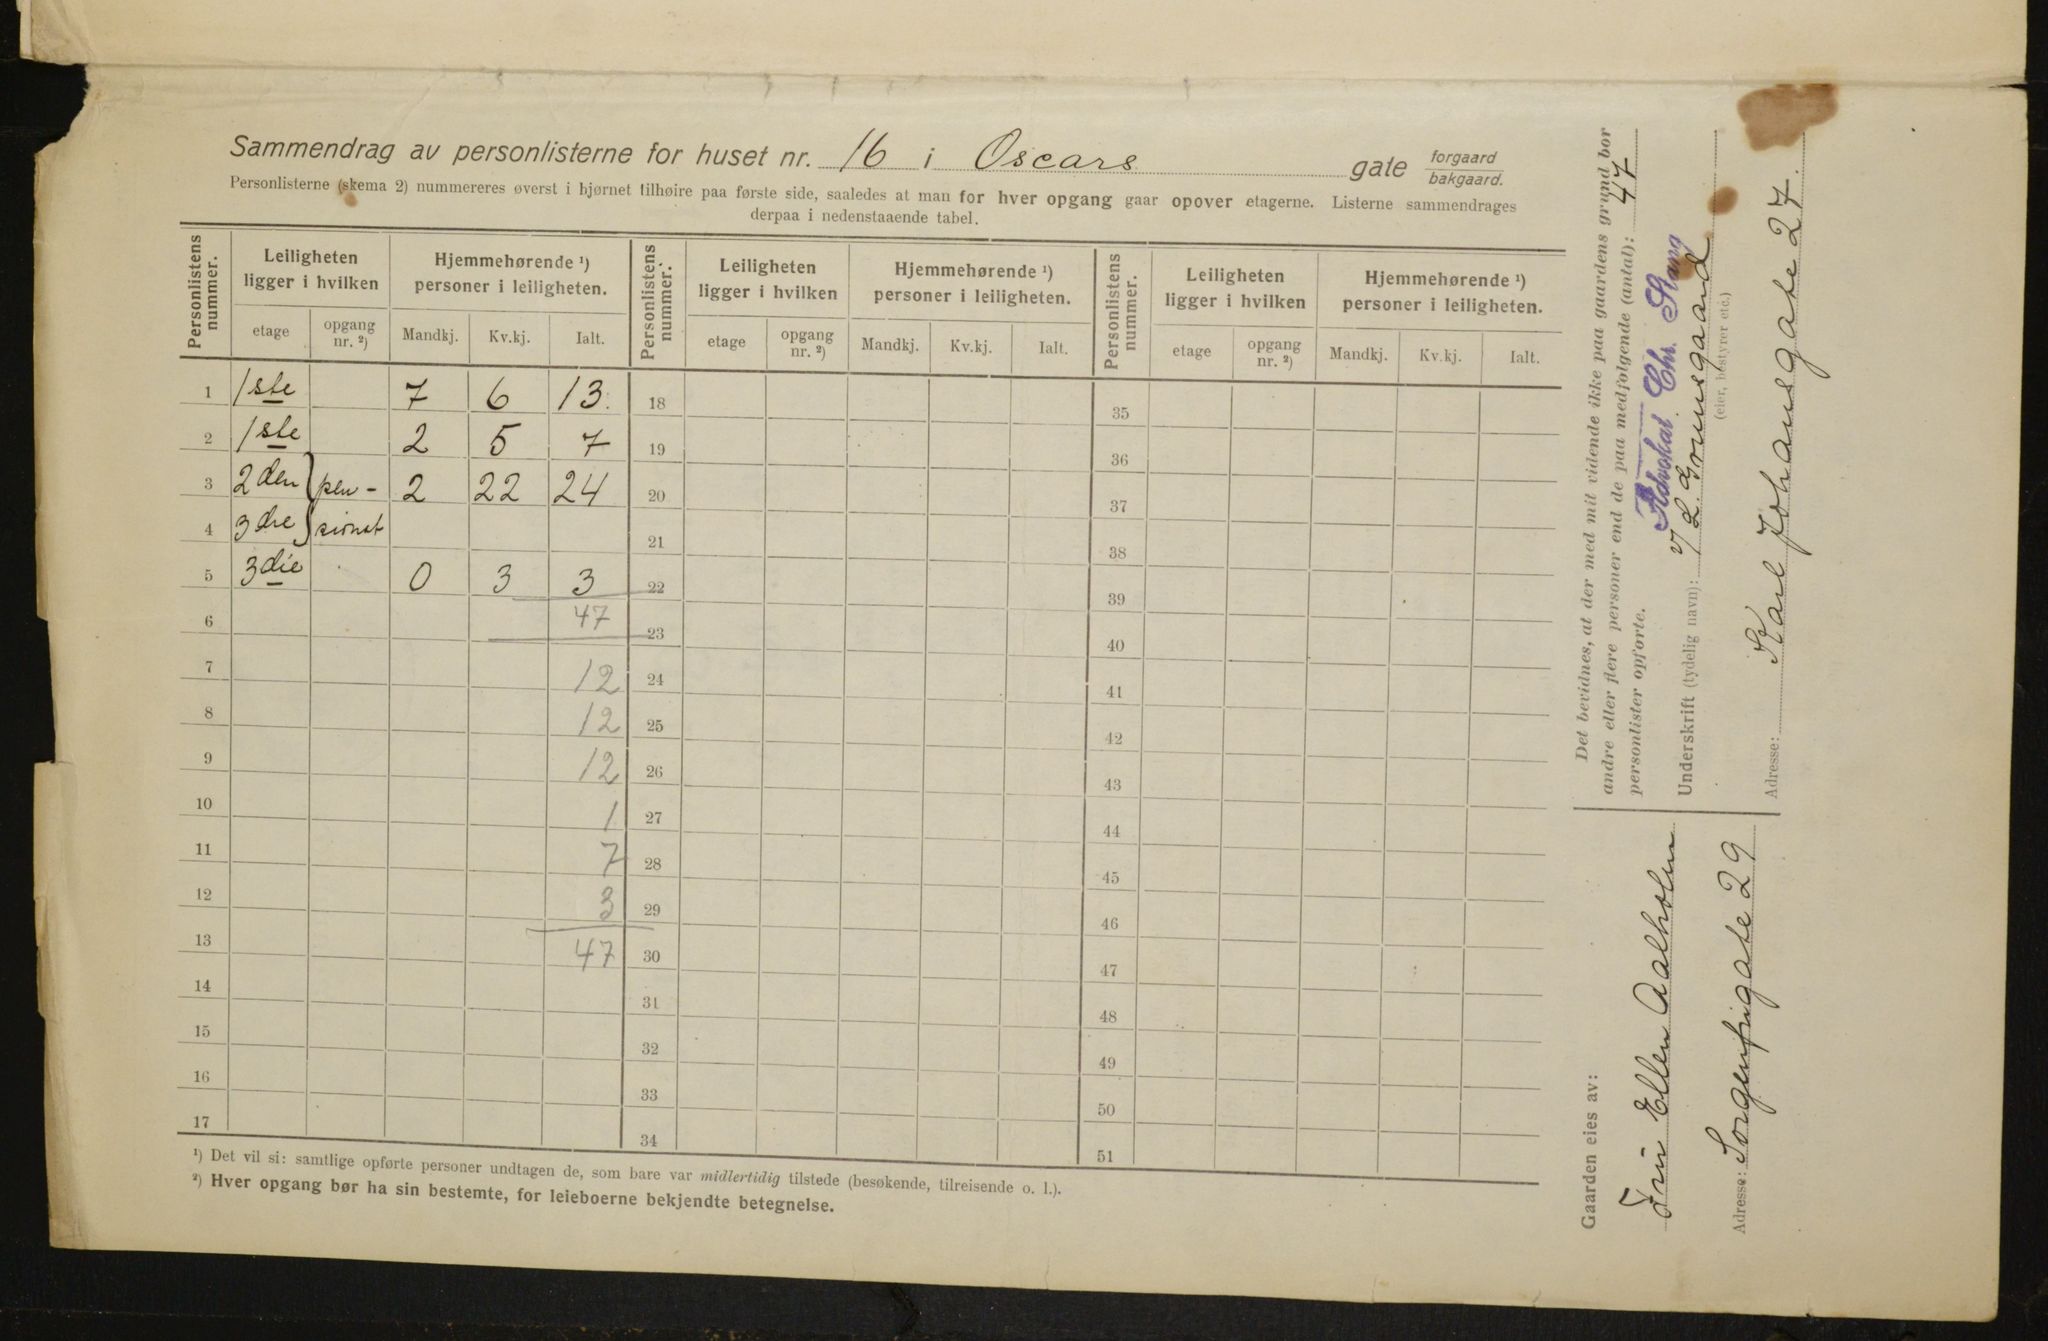 Sammendrag av personlisterne for huset nr. 16 i Oscars gate forgaard bakgaard.
Personlisterne (skema 2) nummereres øverst i hjørnet tilhøire paa første side, saaledes at man for hver opgang gaar opover etagerne. Listerne sammendrages
derpaa i nedenstaaende tabel.
Personlistens nummer. Leiligheten ligger i hvilken Hjemmehørende ¹) personer i leiligheten. Personlistens nummer. Leiligheten ligger i hvilken Hjemmehørende ¹) personer i leiligheten. Personlistens nummer. Leiligheten ligger i hvilken Hjemmehørende ¹) personer i leiligheten.
etage opgang nr. ²) Mandkj. Kv.kj. Ialt. etage opgang nr. ²) Mandkj. Kv.kj. Ialt. etage opgang nr. ²) Mandkj. Kv.kj. Ialt.
1 1ste 7 6 13. 18 35
2 1ste 2 5 7 19 36
3 2den pen- 2 22 24 20 37
4 3die sionat 21 38
5 3die 0 3 3 22 39
6 47 23 40
7 12 24 41
8 12 25 42
9 12 26 43
10 1 27 44
11 7 28 45
12 3 29 46
13 47 30 47
14 31 48
15 32 49
16 33 50
17 34 51
¹) Det vil si: samtlige opførte personer undtagen de, som bare var midlertidig tilstede (besøkende, tilreisende o. l.).
²) Hver opgang bør ha sin bestemte, for leieboerne bekjendte betegnelse.
Det bevidnes, at der med mit vidende ikke paa gaardens grund bor
andre eller flere personer end de paa medfølgende (antal): 47
personlister opførte.
Advokat Chr. Stang
Underskrift (tydelig navn): v/ L. Gronnsgaard
(eier, bestyrer etc.)
Adresse: Karl Johansgate 27.
Gaarden eies av:
Fru Ellen Aalholm
Adresse: Sorgenfrigate 29